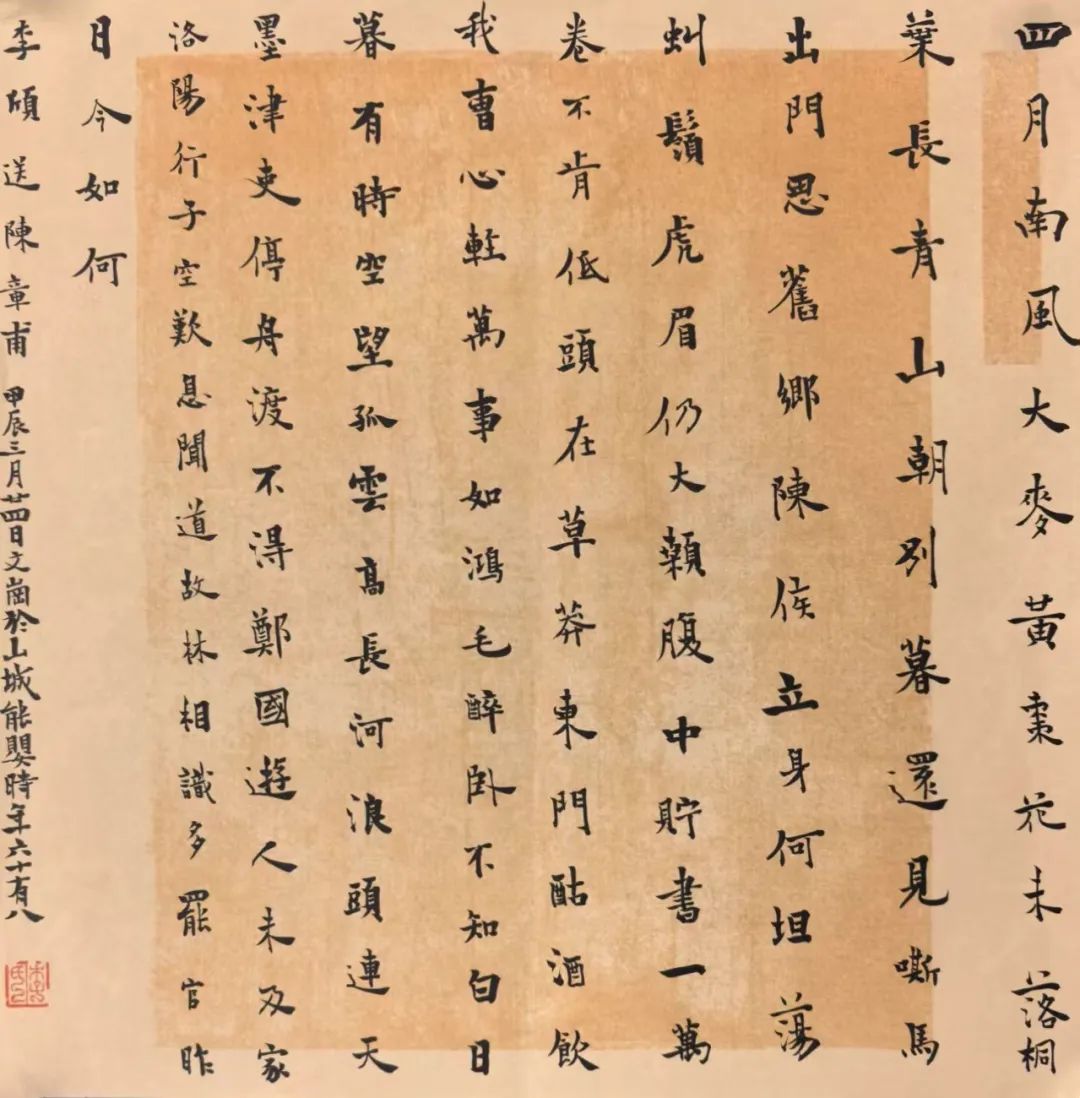 四月南風大麥黃棗花未落桐
葉長青山朝列暮還見嘶馬
出門思舊鄉陳侯立身何坦蕩
虯鬚虎眉仍大顙腹中貯書一萬
卷不肯低頭在草莽東門酤酒飲
我曹心輕萬事如鴻毛醉臥不知白日
暮有時空望孤雲高長河浪頭連天
墨津吏停舟渡不得鄭國遊人未及家
洛陽行子空歎息聞道故林相識多罷官昨
日今如何
李頎送陳章甫 甲辰三月廿四日文崗於山城能嬰時年六十有八